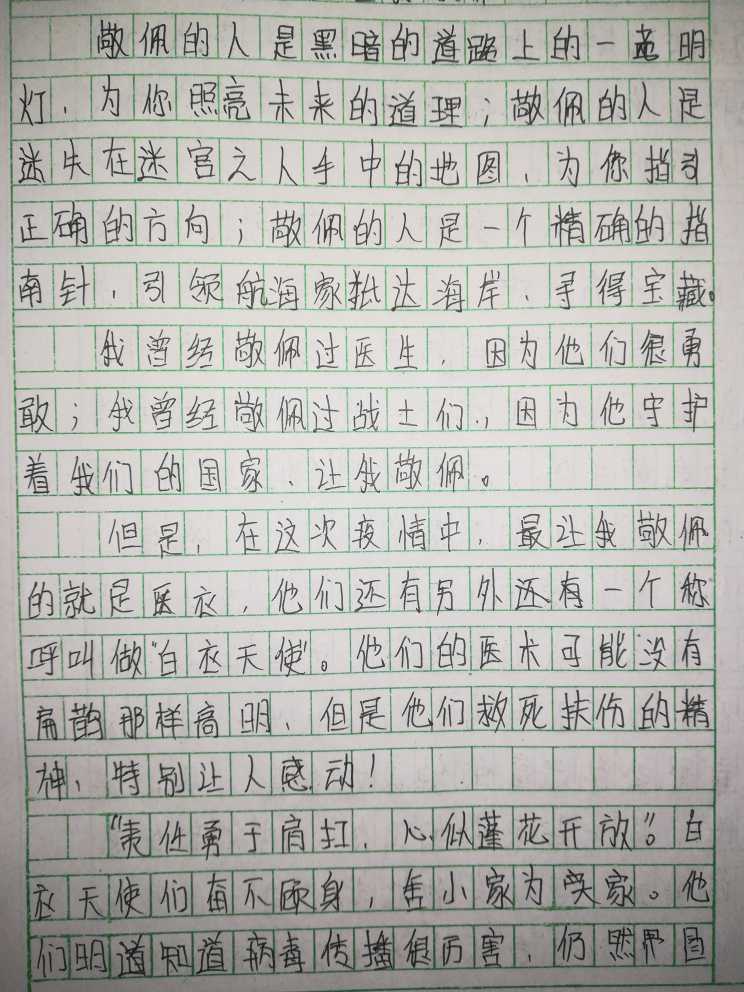 敬佩的人是黑暗的道路上的一盏明
灯，为你照亮未来的道理；敬佩的人是
迷失在迷宫之人手中的地图，为你指引
正确的方向；敬佩的人是一个精确的指
南针，引领航海家抵达海岸、寻得宝藏。
我曾经敬佩过医生，因为他们很勇
敢；我曾经敬佩过战士们，因为他守护
着我们的国家、让我敬佩。
但是，在这次疫情中，最让我敬佩
的就是医衣，他们还有另外还有一个称
呼叫做“白衣天使”。他们的医术可能没有
扁鹊那样高明、但是他们救死扶伤的精
神，特别让人感动！
“责任勇于肩扛，心似莲花开放”。白
衣天使们奋不顾身，舍小家为实家。他
们明道知道病毒传播很厉害，仍然